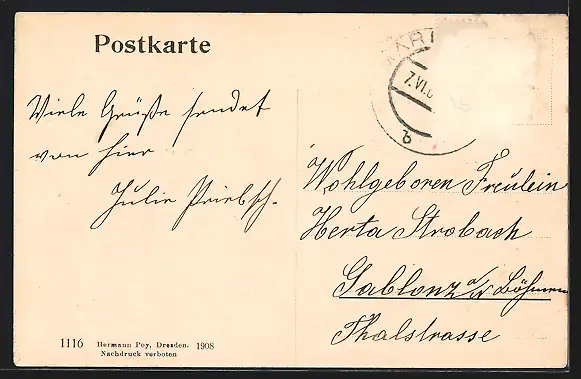 Postkarte
7.VI.0
b
Viele Grüße sendet
von hier
Julie Priebsch.
Wohlgeboren Freulein
Herta Strobach
Gablonz a/N Böhmen
Thalstrasse
1116 Hermann Poy, Dresden. 1908
Nachdruck verboten